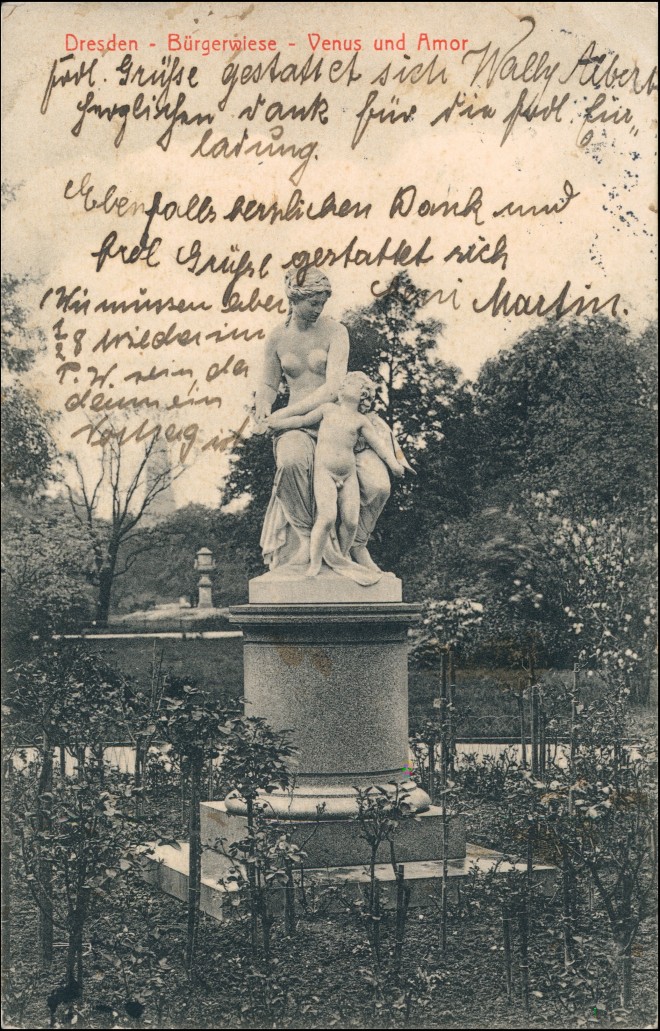 Dresden - Bürgerwiese - Venus und Amor
frdl. Grüße gestattet sich Wally Albert
herzlichen Dank für die frdl. Ein„
ladung.
Ebenfalls herzlichen Dank und
frdl Grüße gestattet sich
Martin.
(Wir müssen aber
1/28 wieder im
P. W. sein, da
dann ein
Vortrag ist